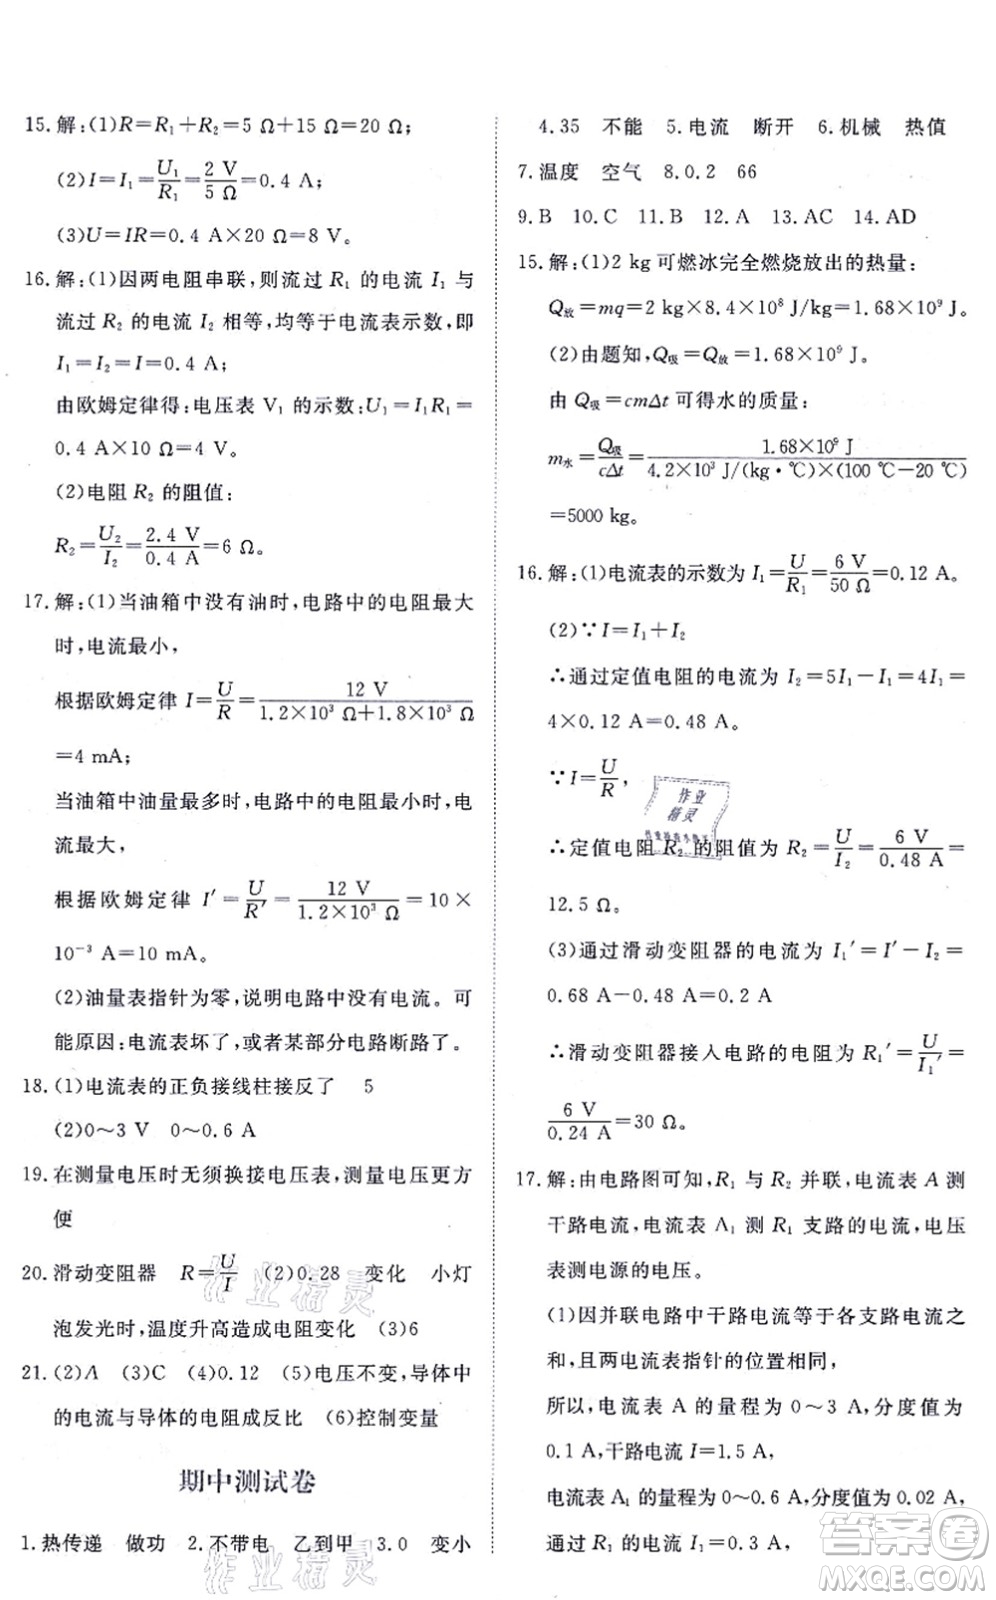 15.解:(1)R=R₁+R₂=5 Ω+15 Ω=20 Ω;
(2)I=I₁=U₁/R₁=2 V/5 Ω=0.4 A;
(3)U=IR=0.4 A×20 Ω=8 V。
16.解:(1)因两电阻串联,则流过 R₁ 的电流 I₁ 与
流过 R₂ 的电流 I₂ 相等,均等于电流表示数,即
I₁=I₂=I=0.4 A;
由欧姆定律得:电压表 V₁ 的示数:U₁=I₁R₁=
0.4 A×10 Ω=4 V。
(2)电阻 R₂ 的阻值:
R₂=U₂/I₂=2.4 V/0.4 A=6 Ω。
17.解:(1)当油箱中没有油时,电路中的电阻最大
时,电流最小,
根据欧姆定律 I=U/R=12 V/(1.2×10³ Ω+1.8×10³ Ω)
=4 mA;
当油箱中油量最多时,电路中的电阻最小时,电
流最大,
根据欧姆定律 I′=U/R′=12 V/(1.2×10³ Ω)=10×
10⁻³ A=10 mA。
(2)油量表指针为零,说明电路中没有电流。可
能原因:电流表坏了,或者某部分电路断路了。
18.(1)电流表的正负接线柱接反了 5
(2)0～3 V 0～0.6 A
19.在测量电压时无须换接电压表,测量电压更方
便
20.滑动变阻器 R=U/I (2)0.28 变化 小灯
泡发光时,温度升高造成电阻变化 (3)6
21.(2)A (3)C (4)0.12 (5)电压不变,导体中
的电流与导体的电阻成反比 (6)控制变量
期中测试卷
1.热传递 做功 2.不带电 乙到甲 3.0 变小
4.35 不能 5.电流 断开 6.机械 热值
7.温度 空气 8.0.2 66
9.B 10.C 11.B 12.A 13.AC 14.AD
15.解:(1)2 kg可燃冰完全燃烧放出的热量:
Q放=mq=2 kg×8.4×10⁸ J/kg=1.68×10⁹ J。
(2)由题知,Q吸=Q放=1.68×10⁹ J.
由 Q吸=cmΔt 可得水的质量:
m水=Q吸/cΔt=1.68×10⁹ J/(4.2×10³ J/(kg·℃)×(100 ℃－20 ℃))
=5000 kg。
16.解:(1)电流表的示数为 I₁=U/R₁=6 V/50 Ω=0.12 A。
(2)∵I=I₁+I₂
∴通过定值电阻的电流为 I₂=5I₁－I₁=4I₁=
4×0.12 A=0.48 A。
∵I=U/R,
∴定值电阻 R₂ 的阻值为 R₂=U/I₂=6 V/0.48 A=
12.5 Ω。
(3)通过滑动变阻器的电流为 I₁′=I′－I₂=
0.68 A－0.48 A=0.2 A
∴滑动变阻器接入电路的电阻为 R₁′=U/I₁′=
6 V/0.24 A=30 Ω。
17.解:由电路图可知,R₁ 与 R₂ 并联,电流表 A 测
干路电流,电流表 A₁ 测 R₁ 支路的电流,电压
表测电源的电压。
(1)因并联电路中干路电流等于各支路电流之
和,且两电流表指针的位置相同,
所以,电流表 A 的量程为 0～3 A,分度值为
0.1 A,干路电流 I=1.5 A,
电流表 A₁ 的量程为 0～0.6 A,分度值为 0.02 A,
通过 R₁ 的电流 I₁=0.3 A,
作业
精灵
作业精灵
作业精灵
答案圈
MXQE.COM